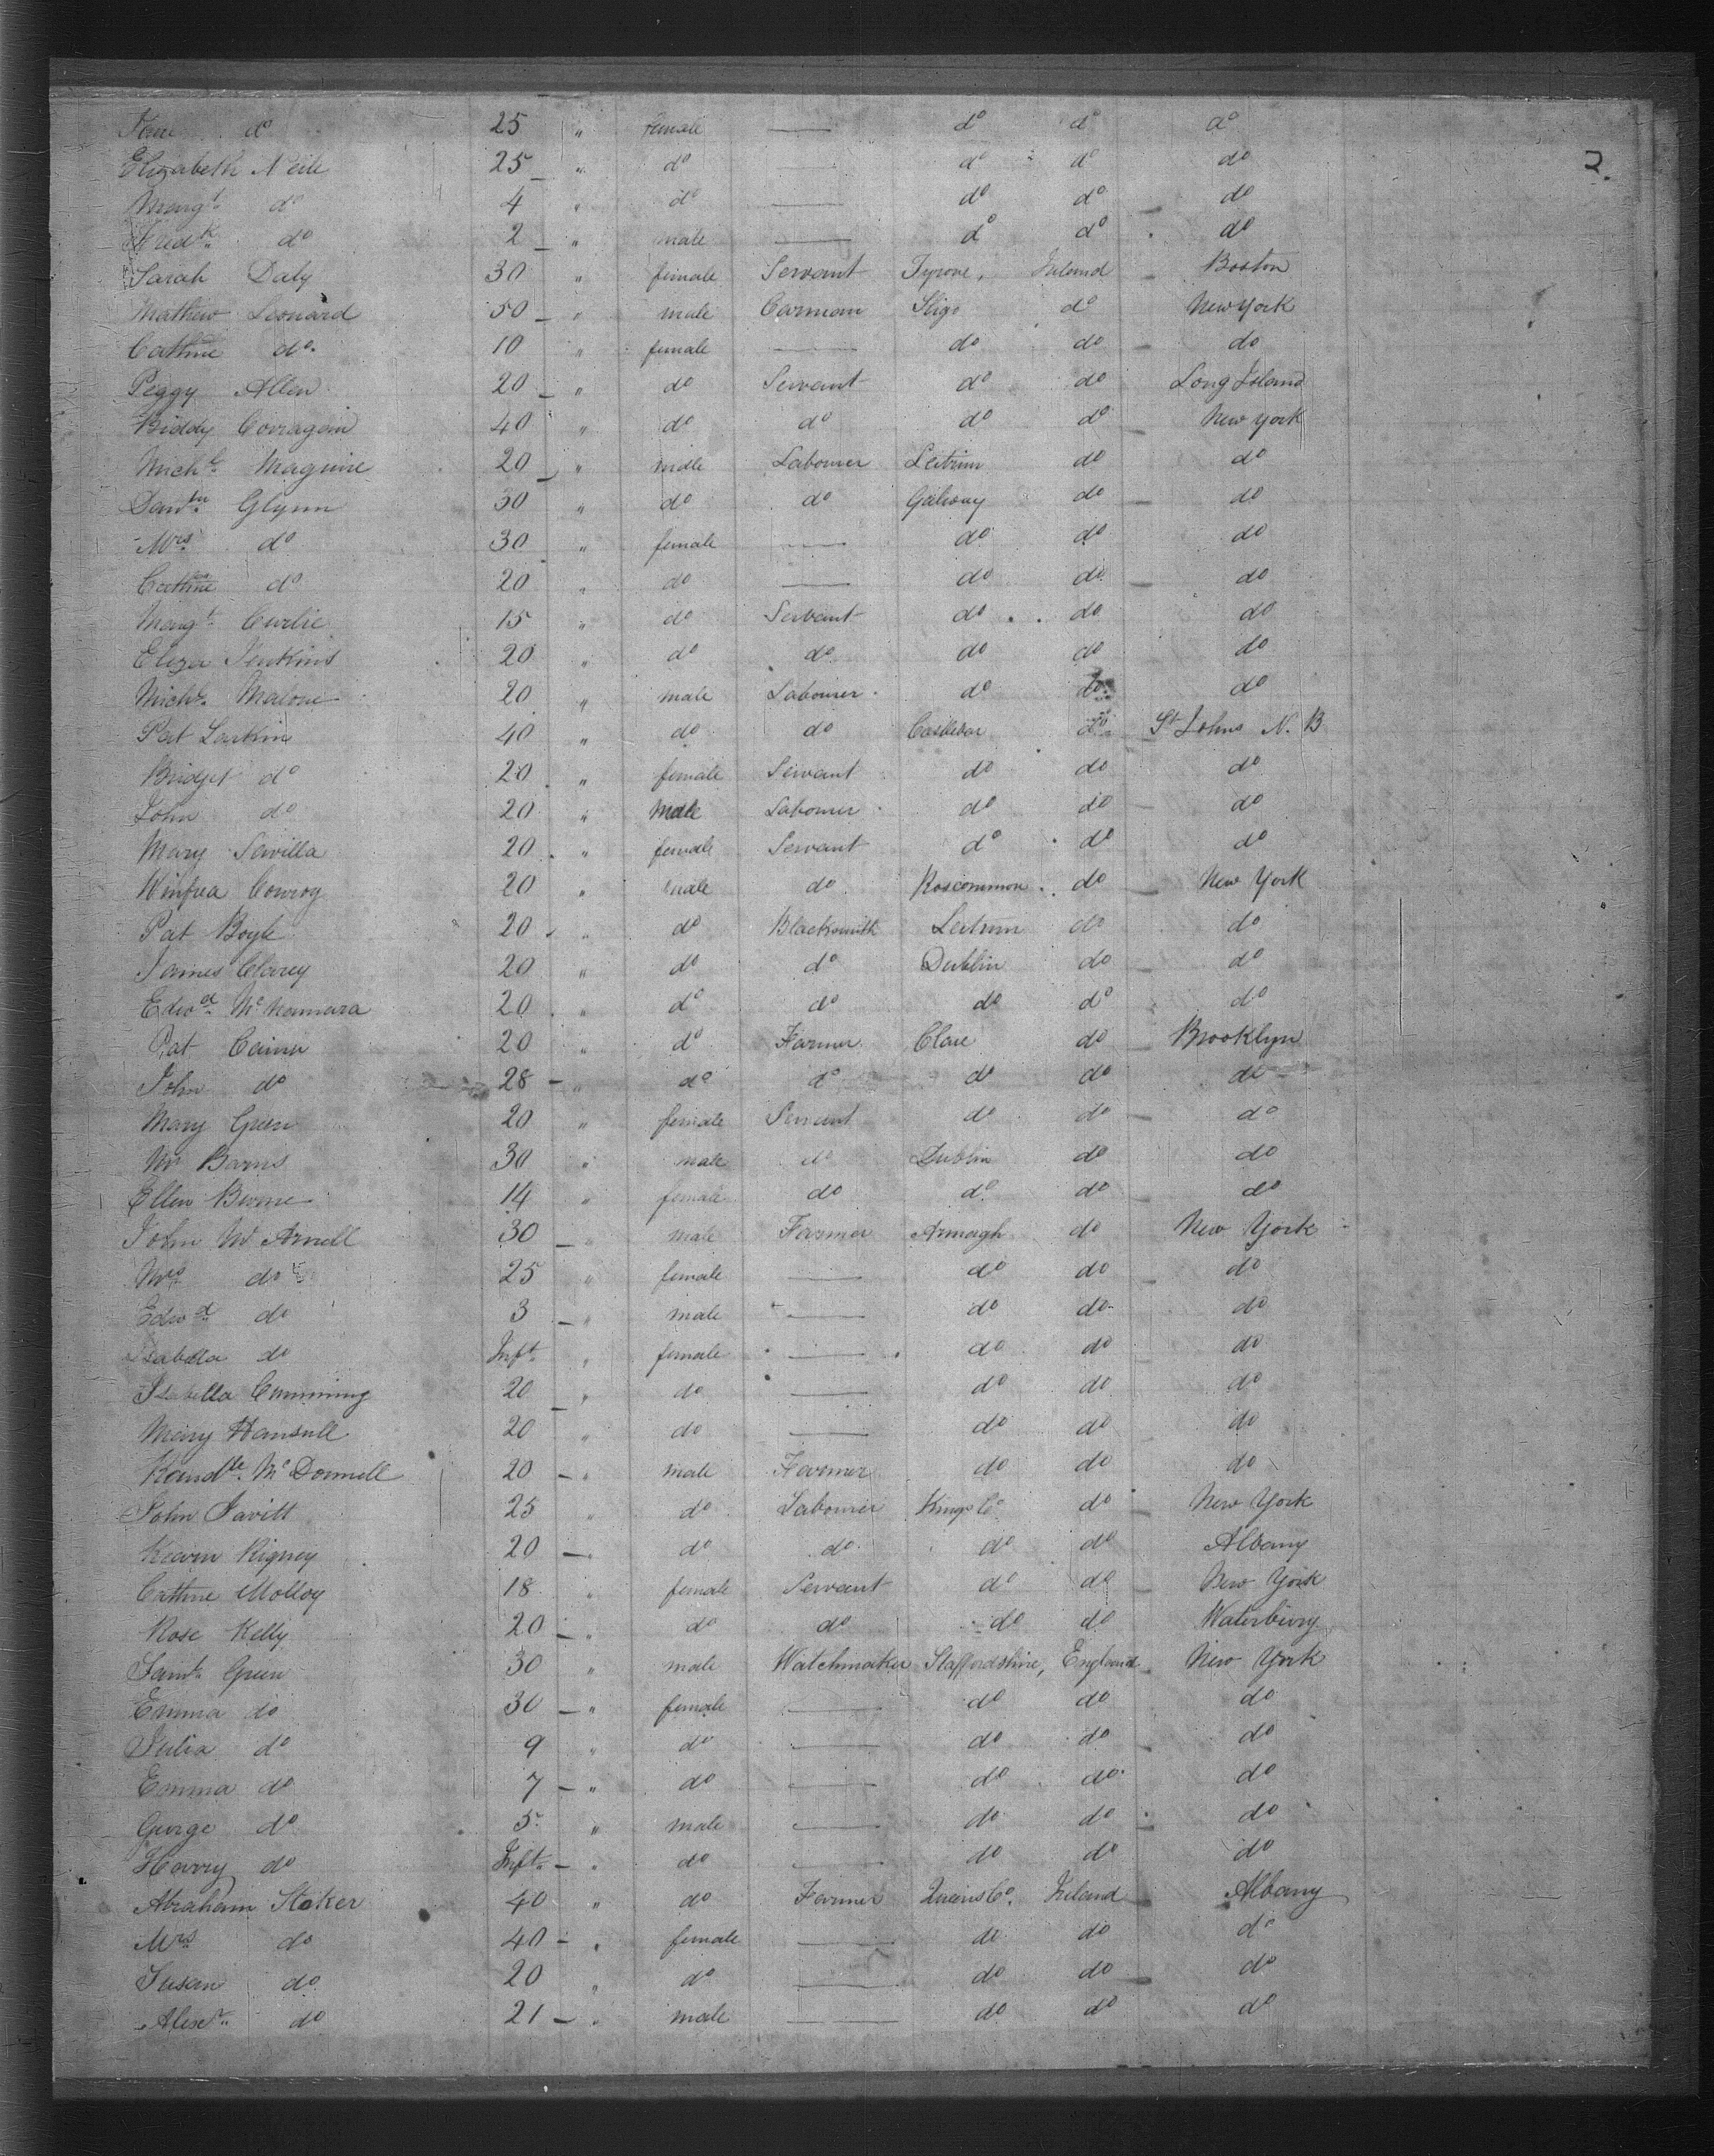 Jane do 25 " female — do do do
2.
Elizabeth Neile 25 " do — do do do
Margt do 4 " do — do do do
Fredk do 2 " male — do do do
Sarah Daly 30 " female Servant Tyrone, Ireland Boston
Mathew Leonard 50 " male Carman Sligo do New York
Cathne do 10 " female — do do do
Peggy Allen 20 " do Servant do do Long Island
Biddy 40 " do do do do New York
Michl Maguire 20 " male Labourer Leitrim do do
Glynn 30 " do do Galway do do
Mrs do 30 " female — do do do
Cathne do 20 " do — do do do
Margt Curlie 15 " do Servant do do do
Eliza Jenkins 20 " do do do do do
Michl Malone 20 " male Labourer do do do
Pat Larkin 40 " do do Castlebar do St Johns N. B
Bridget do 20 " female Servant do do do
John do 20 " Male Labourer do do do
Mary Sevilla 20 " female Servant do do do
Winfrea Conroy 20 " male do Roscommon do New York
Pat Boyle 20 " do Blacksmith Leitrim do do
James Clarey 20 " do do Dublin do do
Edwd McNamara 20 " do do do do do
Pat 20 " do Farmer Clare do Brooklyn
John do 28 " do do do do do
Mary Green 20 " female Servant do do do
Mr Barns 30 " male do Dublin do do
Ellen 14 " female do do do do
John Mc Arnell 30 " male Farmer Armagh do New York
Mrs do 25 " female — do do do
Edwd do 3 " male — do do do
Isabella do Inft " female — do do do
Isabella Cumming 20 " do — do do do
Mary Hansull 20 " do — do do do
Randle McDonnell 20 " male Farmer do do do
John Javitt 25 " do Labourer Kings Co do New York
Kearn Rigney 20 " do do do do Albany
Cathne Molloy 18 " female Servant do do New York
Rose Kelly 20 " do do do do Waterbury
Saml Green 30 " male Watchmaker Staffordshire, England New York
Emma do 30 " female — do do do
Julia do 9 " do — do do do
Emma do 7 " do — do do do
George do 5 " male — do do do
Harry do Inft " do — do do do
Abraham Stoker 40 " do Farmer Queens Co. Ireland Albany
Mrs do 40 " female — do do do
Susan do 20 " do — do do do
Alexr do 21 " male — do do do